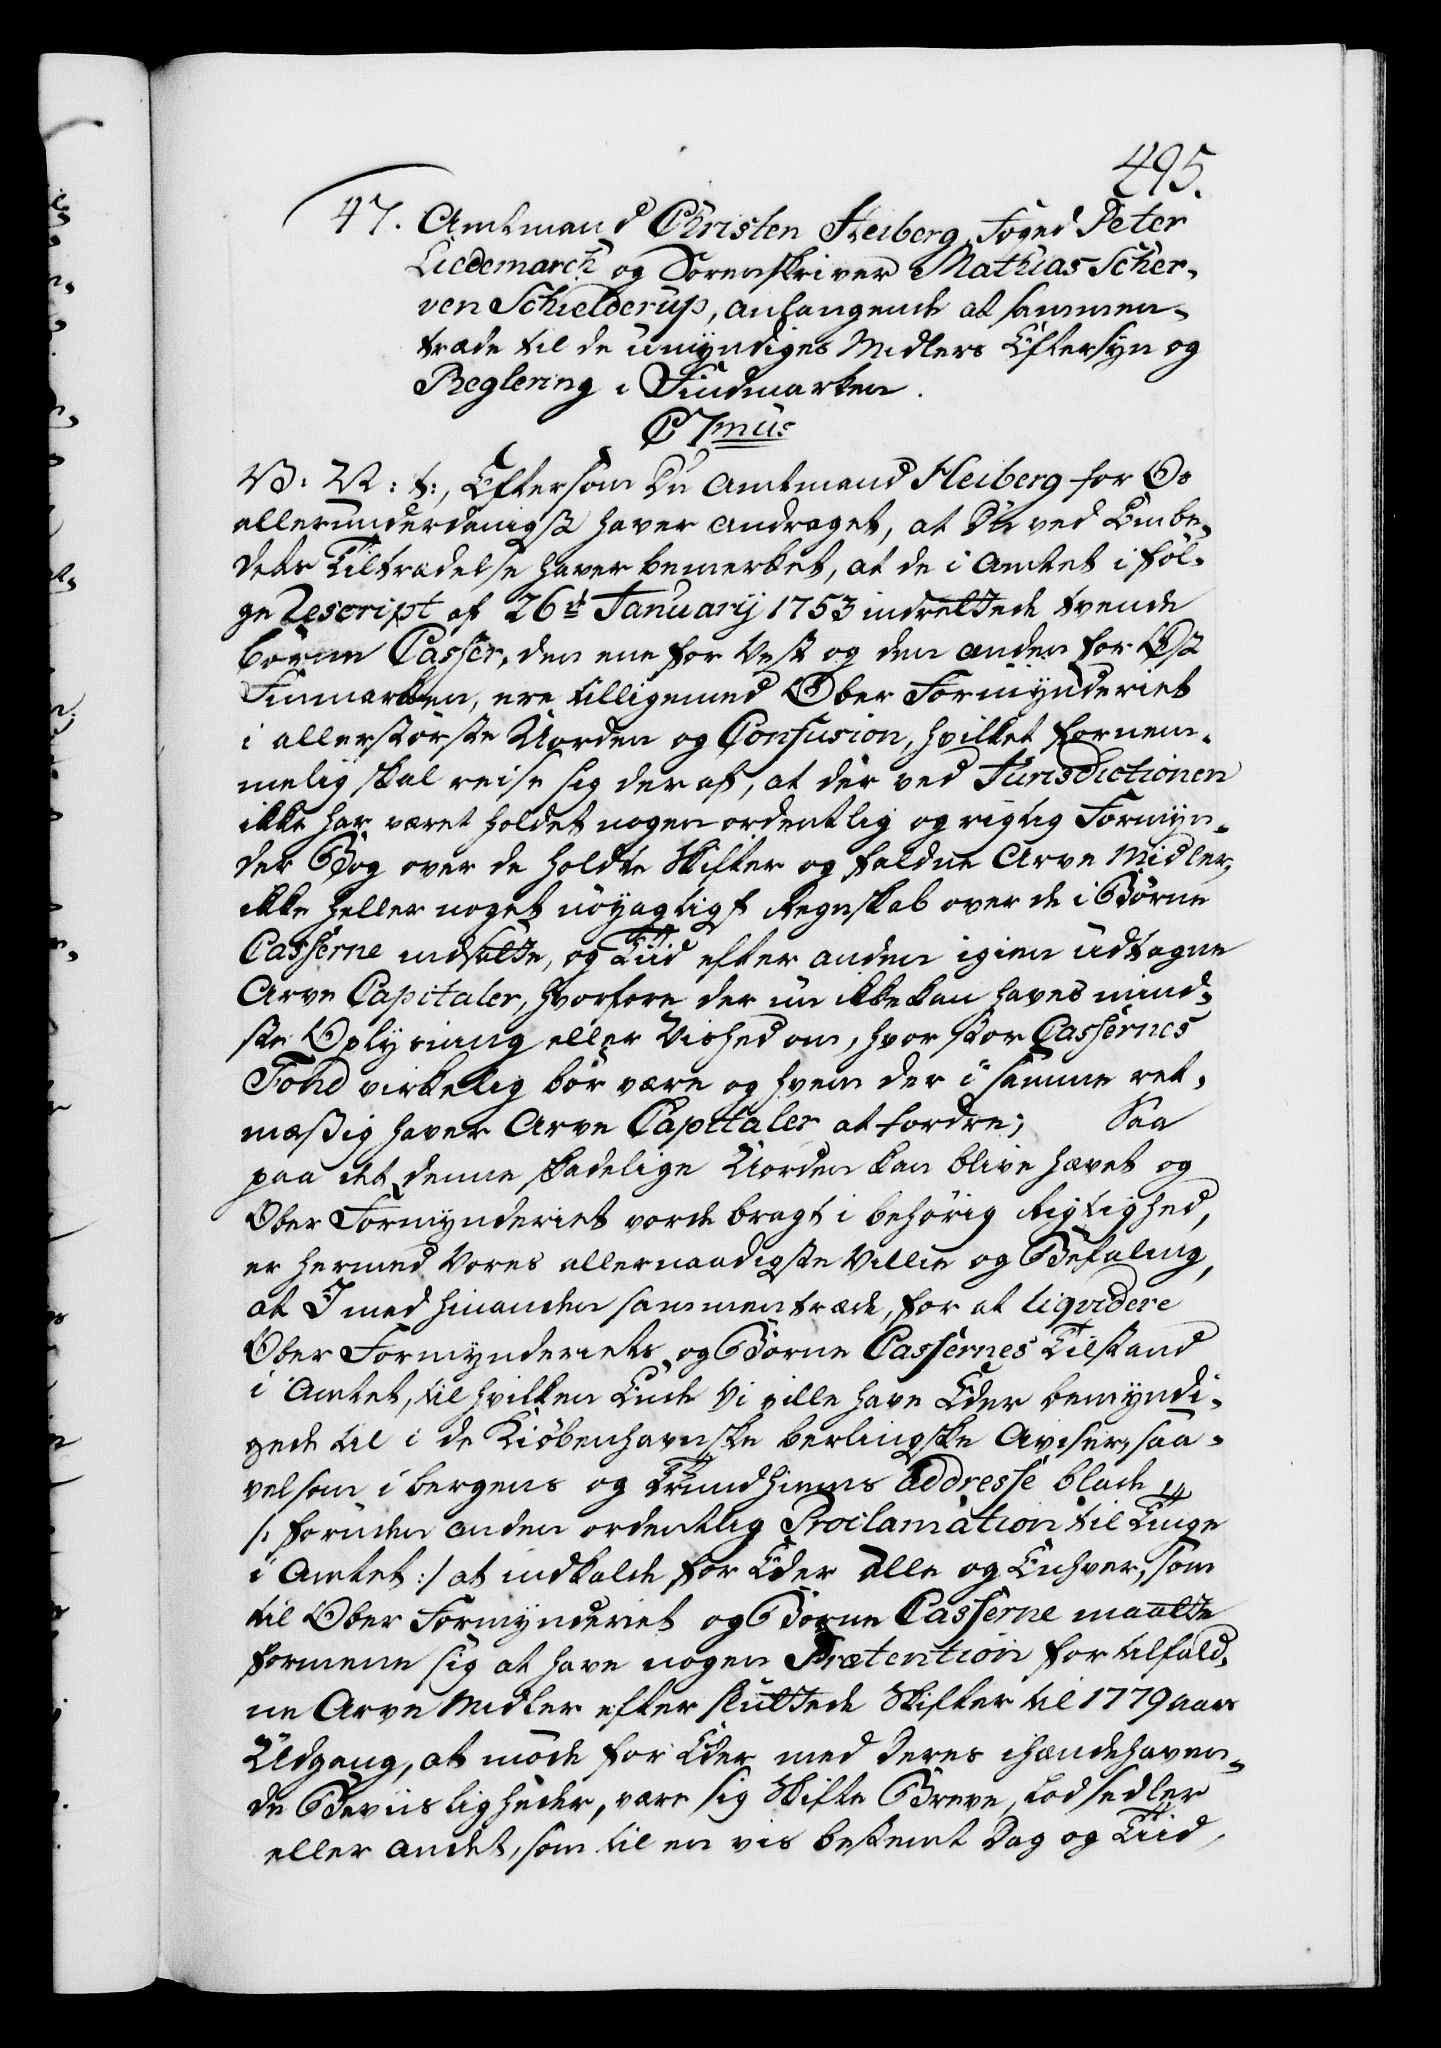 495.
47. Amtmand Christen Heiberg, Foged Peter
Liedemarch og Sorenskriver Mathias Scher-
ven Schielderup, anlangende at sammen-
træde til de umyndiges Midlers Eftersyn og
Reglering i Findmarken.
C 7mus
V. V: t:, Eftersom Du Amtmand Heiberg for Os
allerunderdanigst haver andraget, at Du ved Embe-
dets Tiltrædelse haver bemerket, at de i Amtet i føl-
ge Rescript af 26de Januarij 1753 indrettede tvende
børne Casser, den ene for Vest og den anden for Øst
Finmarken, ere tilligemed Ober Formynderiet
i allerstørste Uorden og Confusion, hvilket fornem-
melig skal reise sig deraf, at der ved Jurisdictionen
ikke har været holdet nogen ordentlig og rigtig Formyn-
der Bog over de holdte Skifter og faldne Arve Midler,
ikke heller noget nøyagtigt Regnskab over de i Børne
Casserne indsatte, og Tiid efter anden igien udtagne
Arve Capitaler, hvorfore der nu ikke kan haves mind-
ste Oplysning eller Vished om, hvor stor Cassernes
Fond virkelig bør være og hvem der i samme ret-
mæssig haver Arve Capitaler at fordre; Saa
paa det denne skadelige Uorden kan blive hævet og
Ober Formynderiet vorde bragt i behørig Rigtighed,
er hermed Vores allernaadigste Villie og Befaling,
at I med hinanden sammentræde, for at liqvidere
Ober Formynderiets og Børne Cassernes Tilstand
i Amtet, til hvilken Ende Vi ville have Eder bemyndi-
gede til i de Kiøbenhavnske berlingske Aviser, saa-
velsom i bergens og Trundhiems Addresse blade
/: foruden anden ordentlig Proclamation til Tinge
i Amtet :/ at indkalde for Eder Alle og Enhver, som
til Ober Formynderiet og Børne Casserne maatte
formene sig at have nogen Prætention for tilfald-
ne Arve Midler efter sluttede Skifter til 1779 aars
Udgang, at møde for Eder med deres ihændehaven-
de Beviisligheder, være sig Skifte Breve, Lodsedler
eller andet, som til en vis bestemt Dag og Tiid,